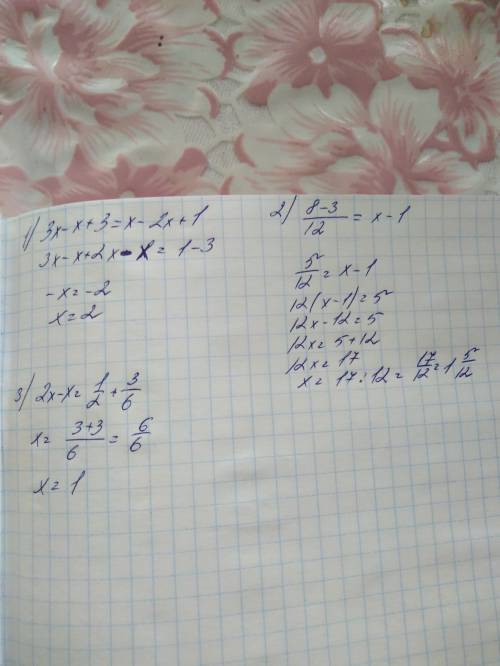 1) 3x-x+3=x-2x+1
3x-x+2x-x=1-3
-x=-2
x=2
2) 8-3/12=x-1
5/12=x-1
12(x-1)=5
12x-12=5
12x=5+12
12x=17
x=17:12=17/12=1 5/12
3) 2x-x=1/2+3/6
x=3+3/6=6/6
x=1